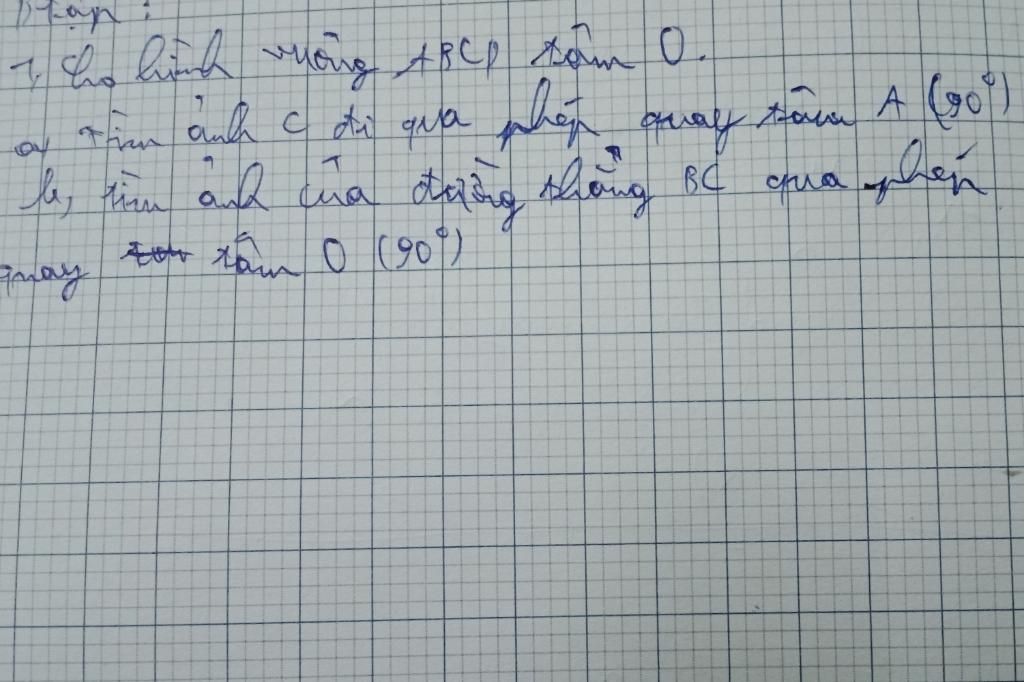 Bt tập :
1, Cho hình vuông ABCD tâm O.
a, Tìm ảnh C đi qua phép quay tâm A (90°)
b, tìm ảnh của đường thẳng BC qua phép
quay tâm O (90°)